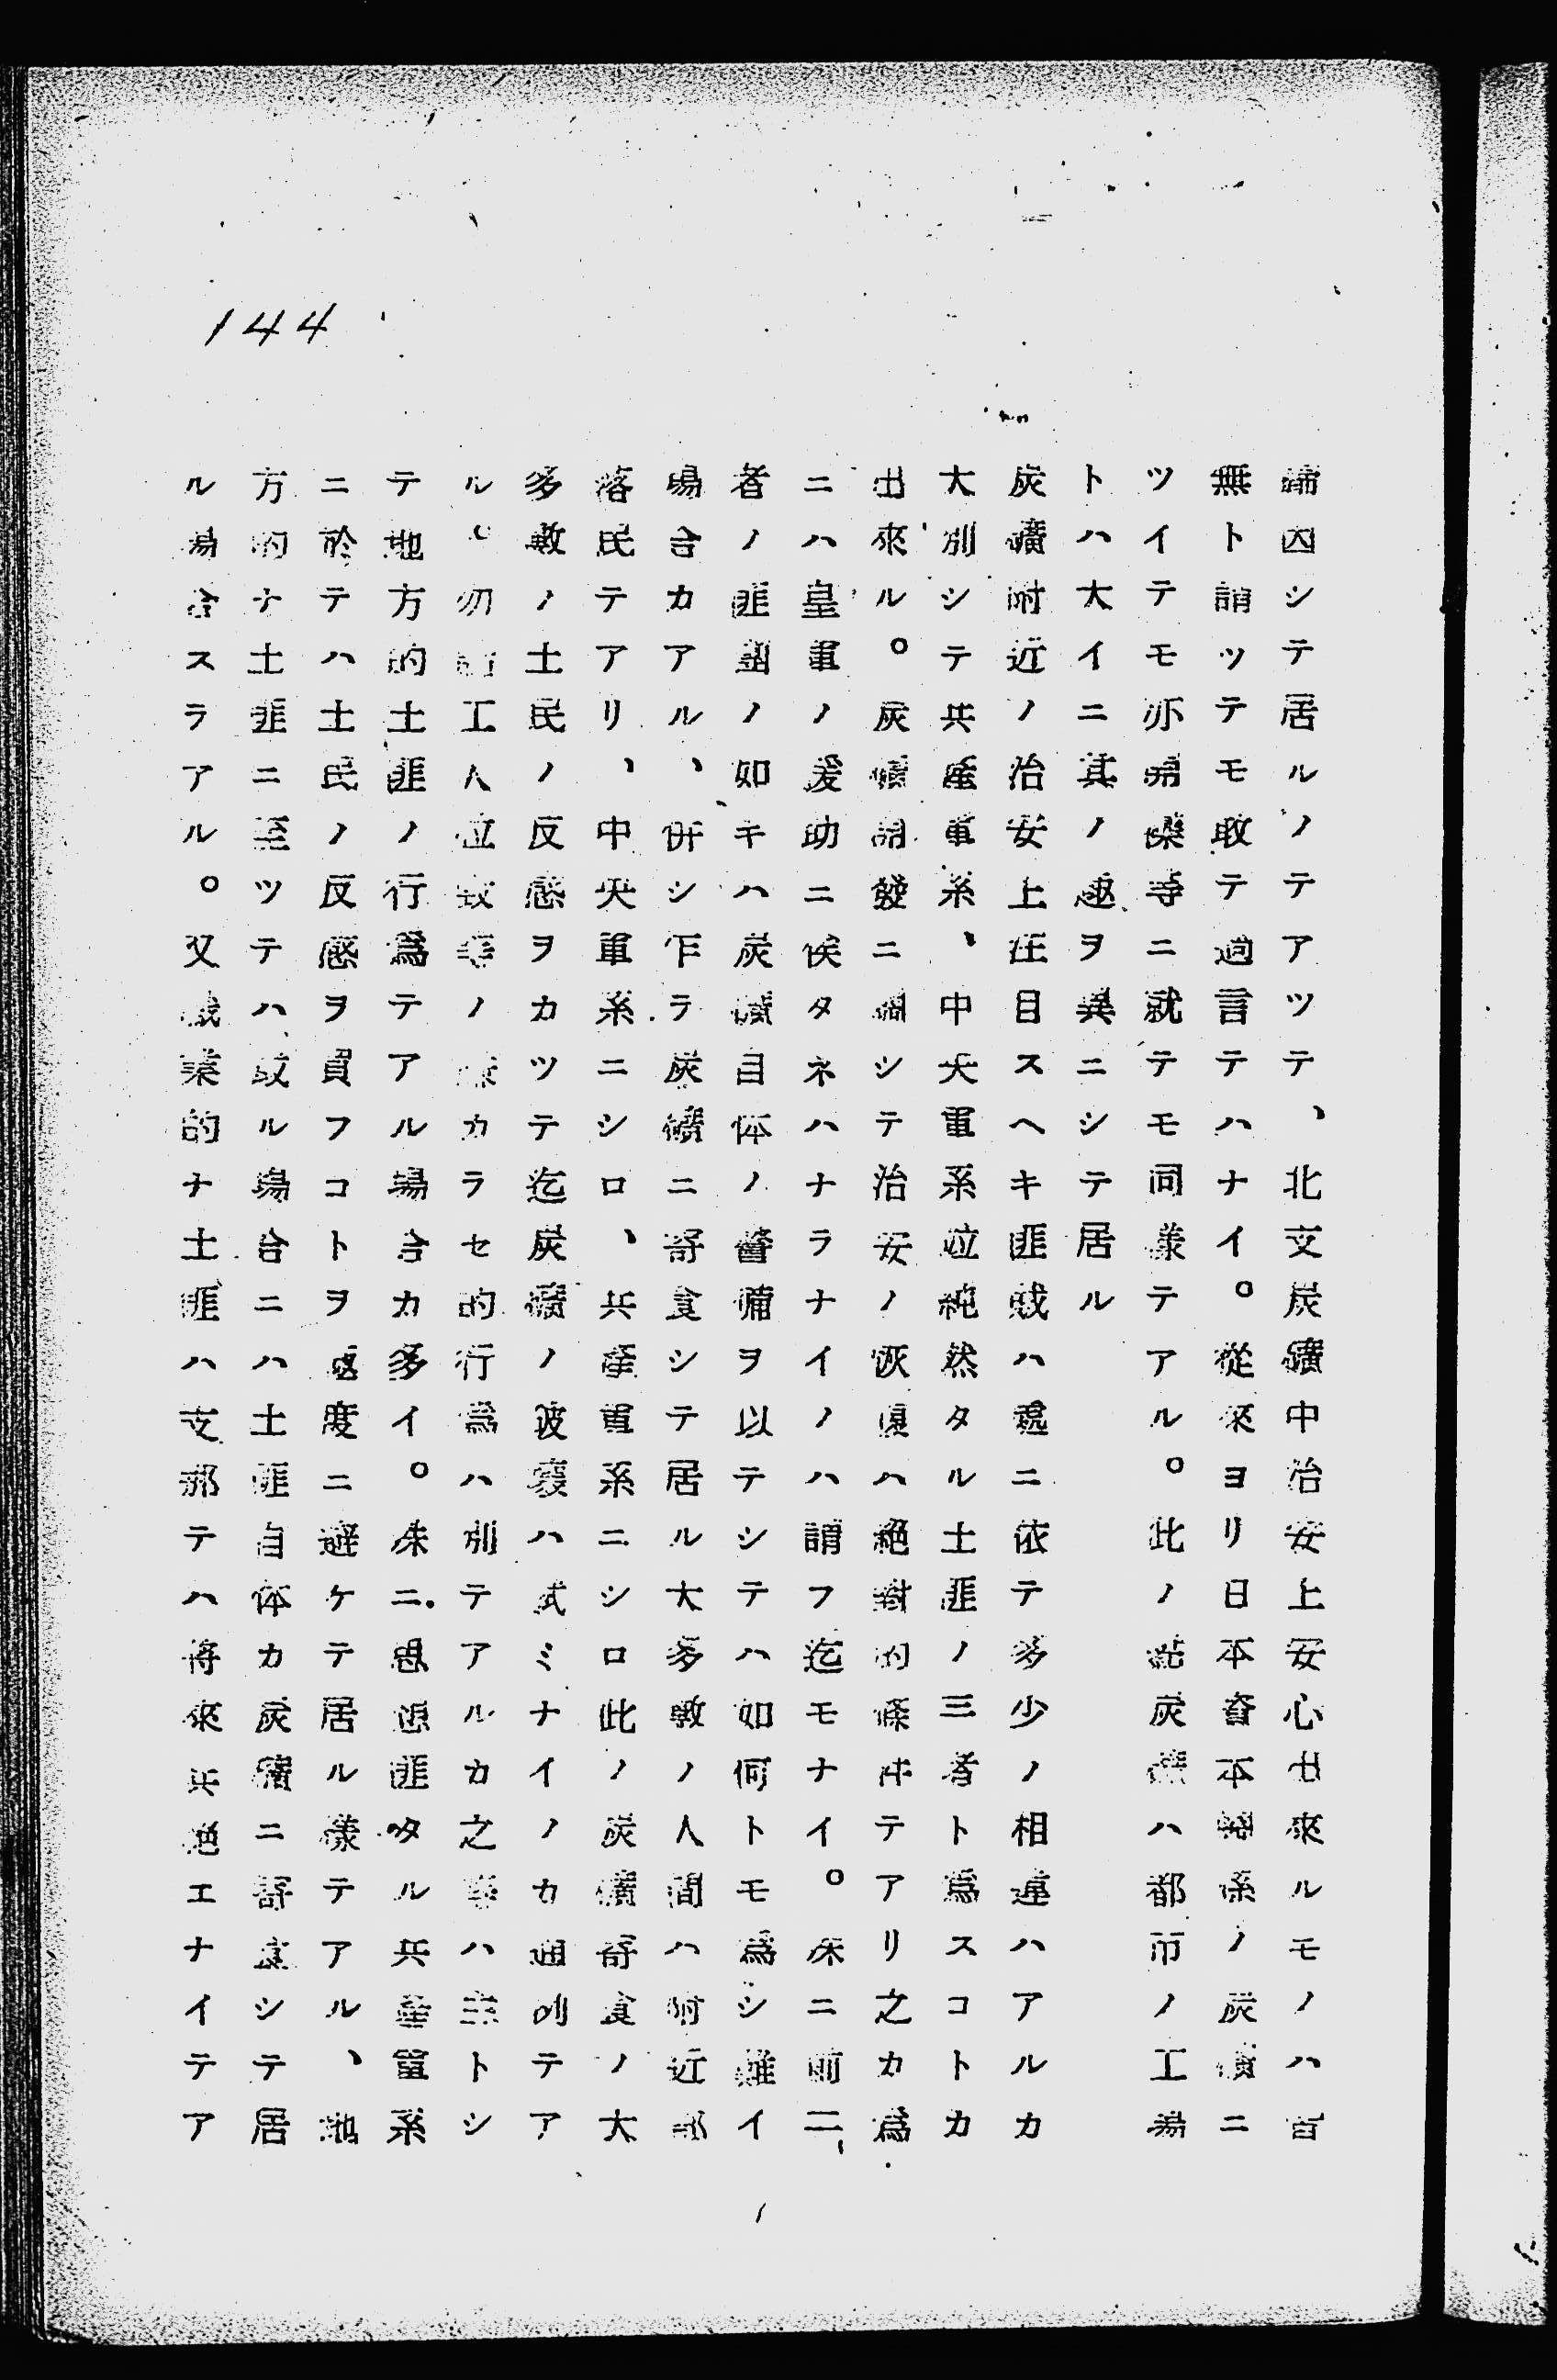 144
諦因シテ居ルノテアツテ、北支炭礦中治安上安心出來ルモノハ皆
無ト謂ツテモ敢テ過言テハナイ。從來ヨリ日本資本關係ノ炭礦ニ
ツイテモ亦端礫等ニ就テモ同樣テアル。此ノ點炭礦ハ都市ノ工場
トハ大イニ其ノ趣ヲ異ニシテ居ル
炭礦附近ノ治安上注目スヘキ匪賊ハ處ニ依テ多少ノ相違ハアルカ
大別シテ共産軍系、中央軍系竝純然タル土匪ノ三者ト爲スコトカ
出來ル。炭礦開發ニ關シテ治安ノ恢復ハ絕對的條件テアリ之カ爲
ニハ皇軍ノ援助ニ俟タネハナラナイノハ謂フ迄モナイ。殊ニ前二
者ノ匪團ノ如キハ炭礦自体ノ警備ヲ以テシテハ如何トモ爲シ難イ
場合カアル、併シ乍ラ炭礦ニ寄食シテ居ル大多數ノ人間ハ附近部
落民テアリ、中央軍系ニシロ、共産軍系ニシロ此ノ炭礦寄食ノ大
多數ノ土民ノ反感ヲカツテ迄炭礦ノ破褱ハ試ミナイノカ通例テア
ル。勿論工人竝敎ノカラセ的行爲ハ別テアルカ之等ハ主トシ
テ地方的土匪ノ行爲テアル場合カ多イ。殊ニ思想匪タル共産軍系
ニ於テハ土民ノ反感ヲ買フコトヲ極度ニ避ケテ居ル樣テアル、地
方的ナ土匪ニ至ツテハ或ル場合ニハ土匪自体カ炭礦ニ寄食シテ居
ル場合スラアル。又職業的ナ土匪ハ支那テハ將來共絶エナイテア